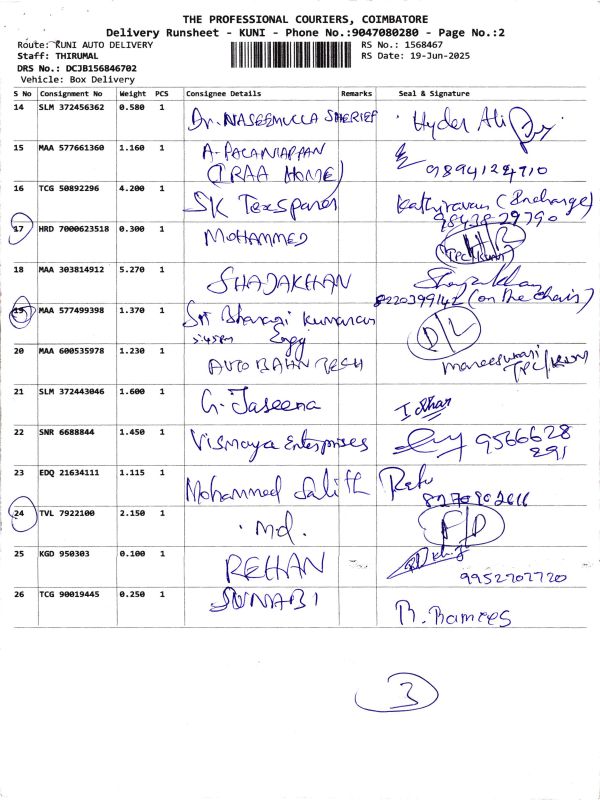 THE PROFESSIONAL COURIERS, COIMBATORE
Delivery Runsheet - KUNI - Phone No.:9047080280 - Page No.:2
Route: KUNI AUTO DELIVERY RS No.: 1568467
Staff: THIRUMAL RS Date: 19-Jun-2025
DRS No.: DCJB156846702
Vehicle: Box Delivery
S No Consignment No Weight PCS Consignee Details Remarks Seal & Signature
14 SLM 372456362 0.580 1 Dr. NASEEMULLA SHERIEF Hyder Ali
15 MAA 577661360 1.160 1 A. PALANIAPPAN
(IRAA HOME) 9894124710
16 TCG 50892296 4.200 1 SK Texspares Kathiravan (Incharge)
98438-29790
17 HRD 7000623518 0.300 1 MOHAMMED
18 MAA 303814912 5.270 1 SHAJAKHAN
8220399142 (on the chair)
19 MAA 577499398 1.370 1 Sri Bharani Kumaran
5:45pm Engg D/L
20 MAA 600535978 1.230 1 AUTO BAHN TECH
21 SLM 372443046 1.600 1 G. Jaseena
22 SNR 6688844 1.450 1 Vismaya Enterprises 9566628
291
23 EDQ 21634111 1.115 1 Mohammed Salith
8270902611
24 TVL 7922100 2.150 1 Md.
25 KGD 950303 0.100 1 REHAN
9952702720
26 TCG 90019445 0.250 1 SUNABI R. Ramees
3